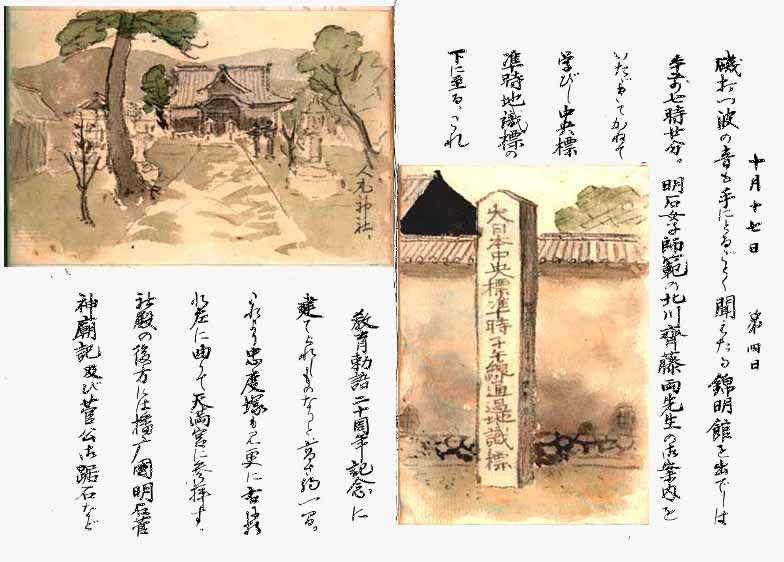 十月十七日　第四日
磯打つ波の音も手にとるごとく聞えたる錦明館を出でしは
午前七時廿分。明石女子師範の北川齊藤両先生の御案内を
いただいてかねて
学びし中央標
準時地識標の
下に至る。これ
大日本中央標準時子午線通過地識標
教育勅語二十周年記念に
建てられしものなりと 高サ約一
これより忠度塚も 更に
左に曲りて天満宮に参拝す。
社殿の後方には播磨國明石菅
神廟記及び菅公御踞石など
人丸神社。